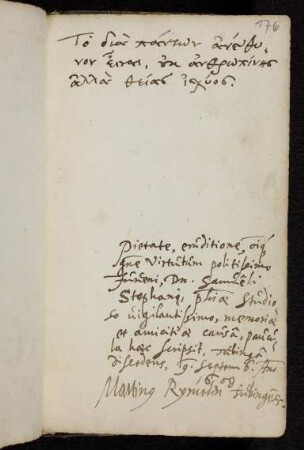 176
Τὸ διὰ πάντων ἀνεύθυ-
νον εἶναι, οὐκ ἀνθρωπίνης
ἀλλὰ θείας ἰσχύος.
Pietate, eruditione, oīq́
que virtutum politissimo
Juveni, Dn. Samuëli
Stephani, Studio-
so vigilantissimo, memoriæ
et amicitiæ causâ, paucu-
la hæc scripsit, Tubingâ
discedens, 9. Septemb. Ano
1608
Martinus Tubing